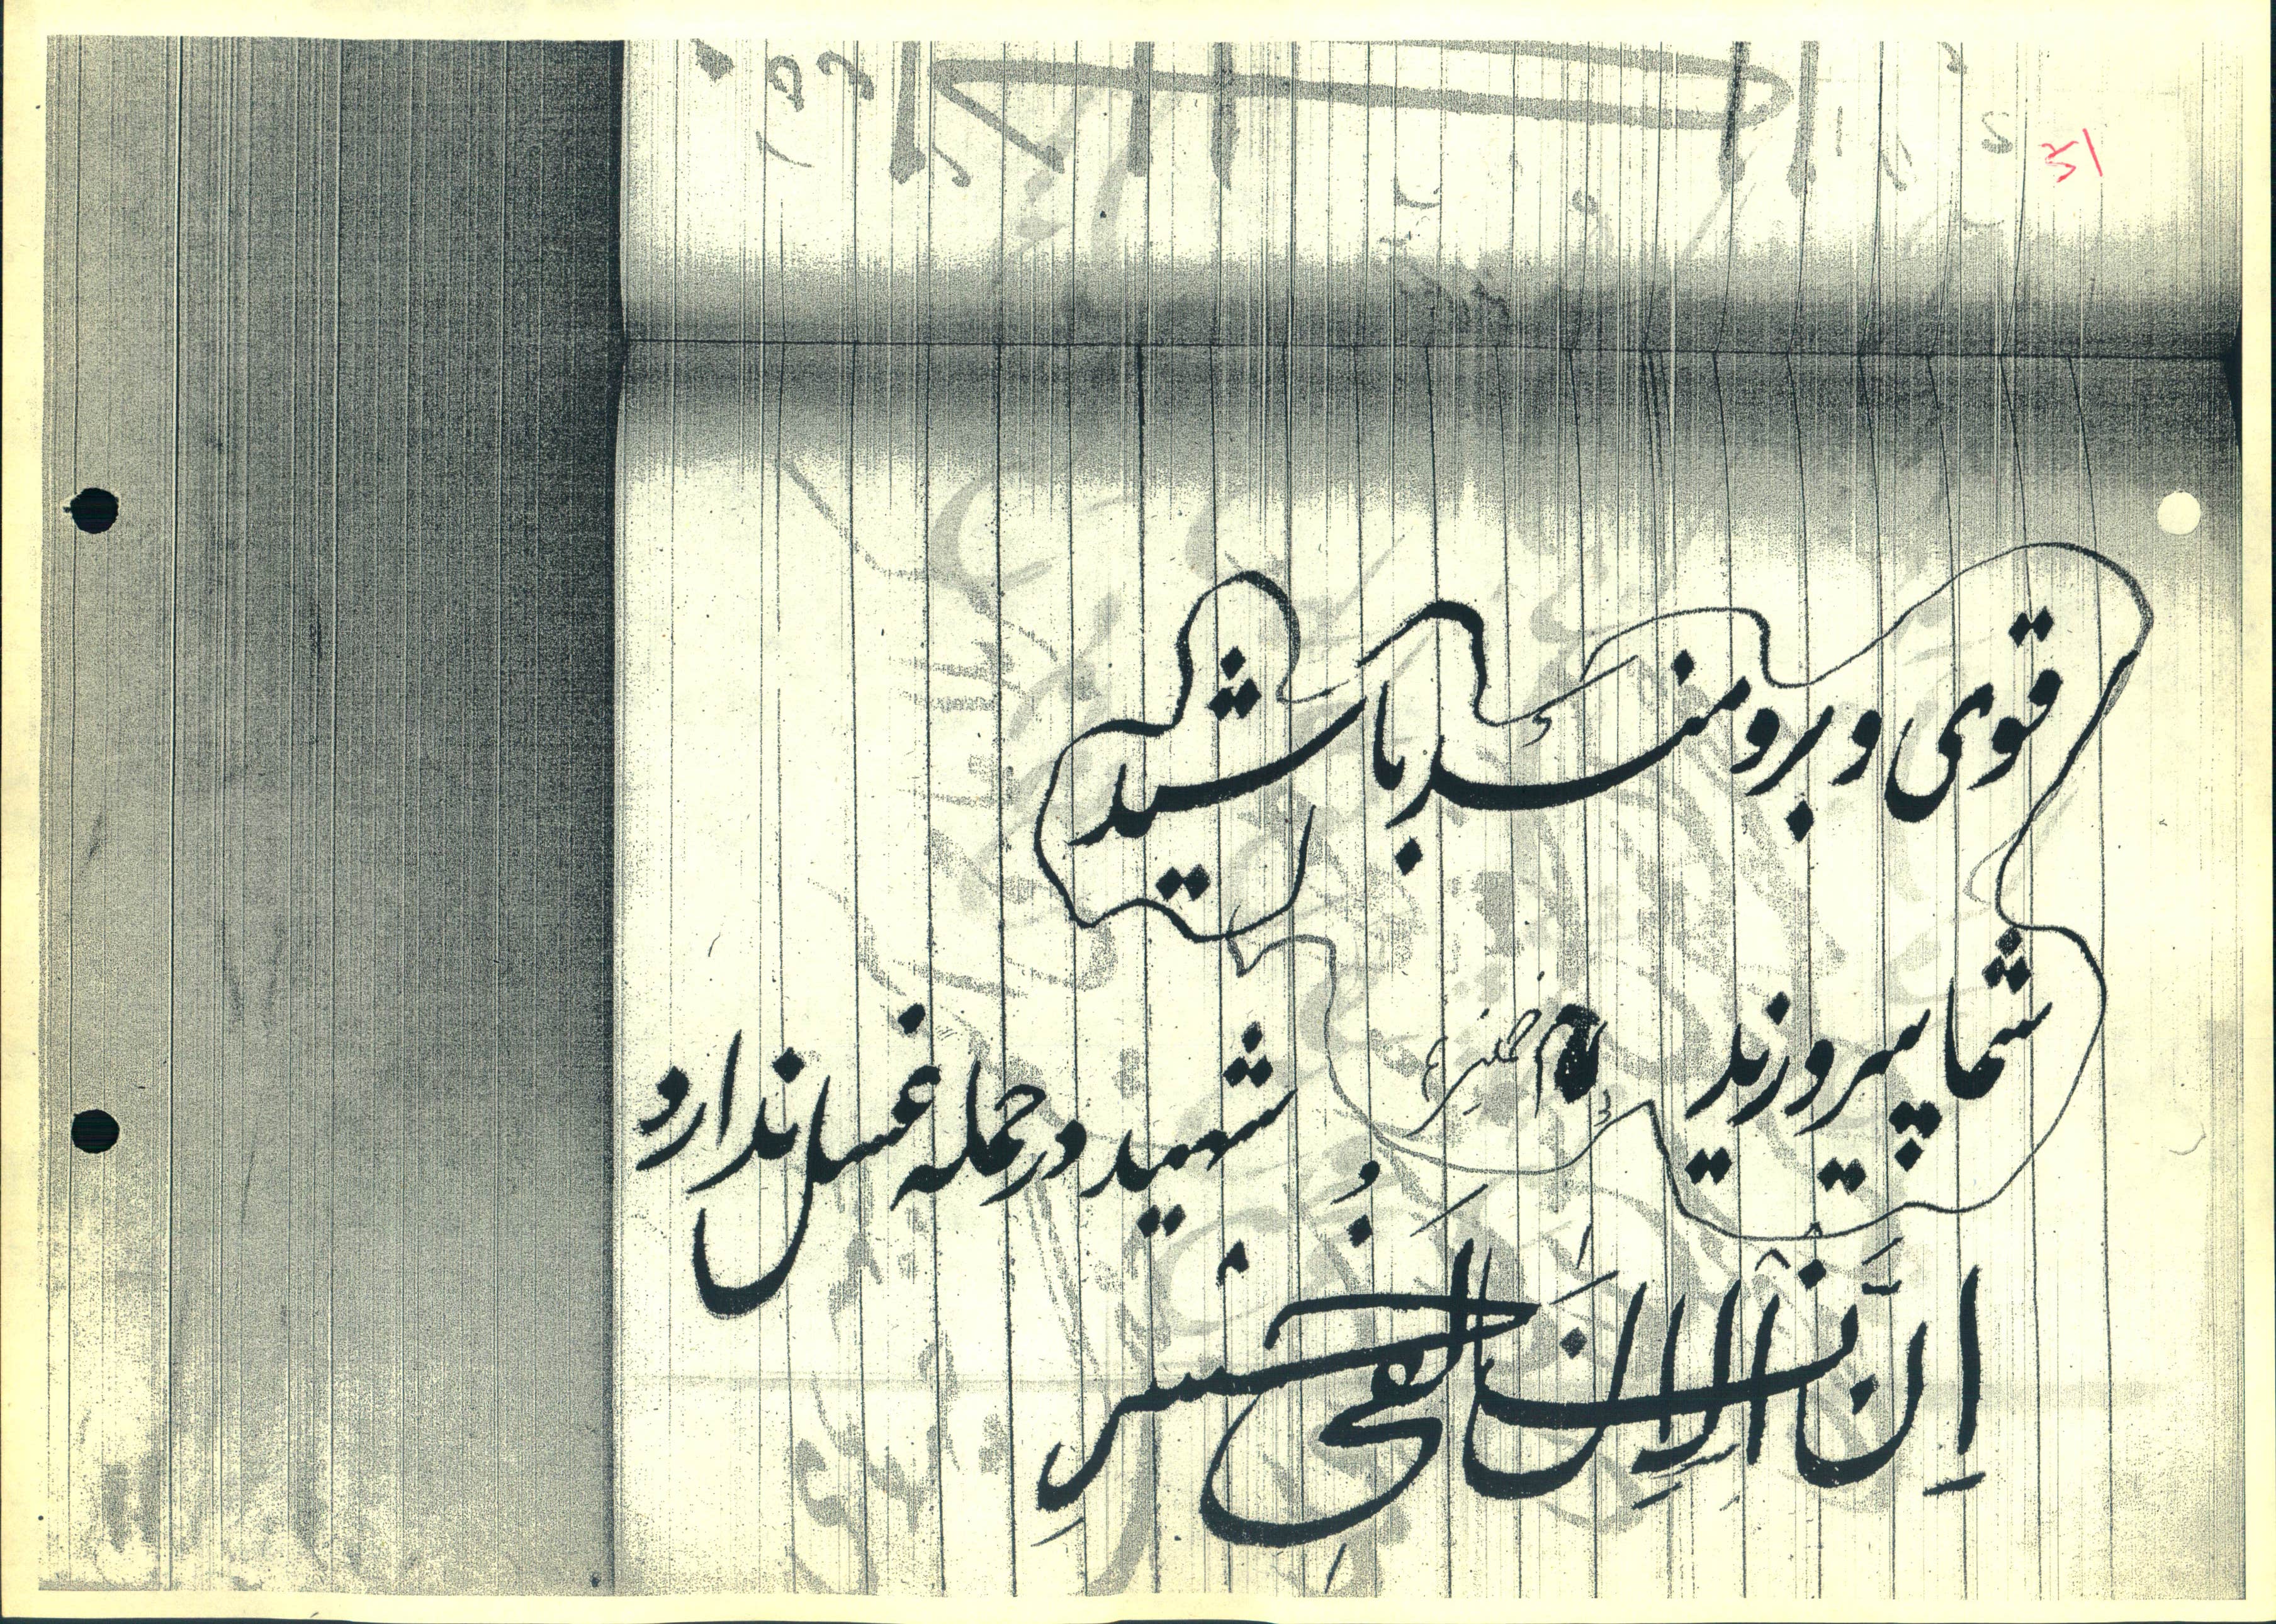 51
قوی و برومند باشید
شما پیروزید امام خمینی
شهید در حمله غسل ندارد
اِنَّ الاِنسانَ لَفی خُسرٍ